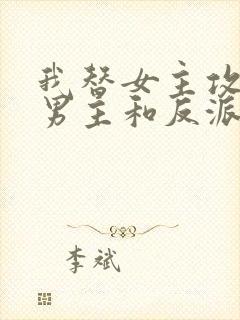 我替女主攻
男主和反派
李斌